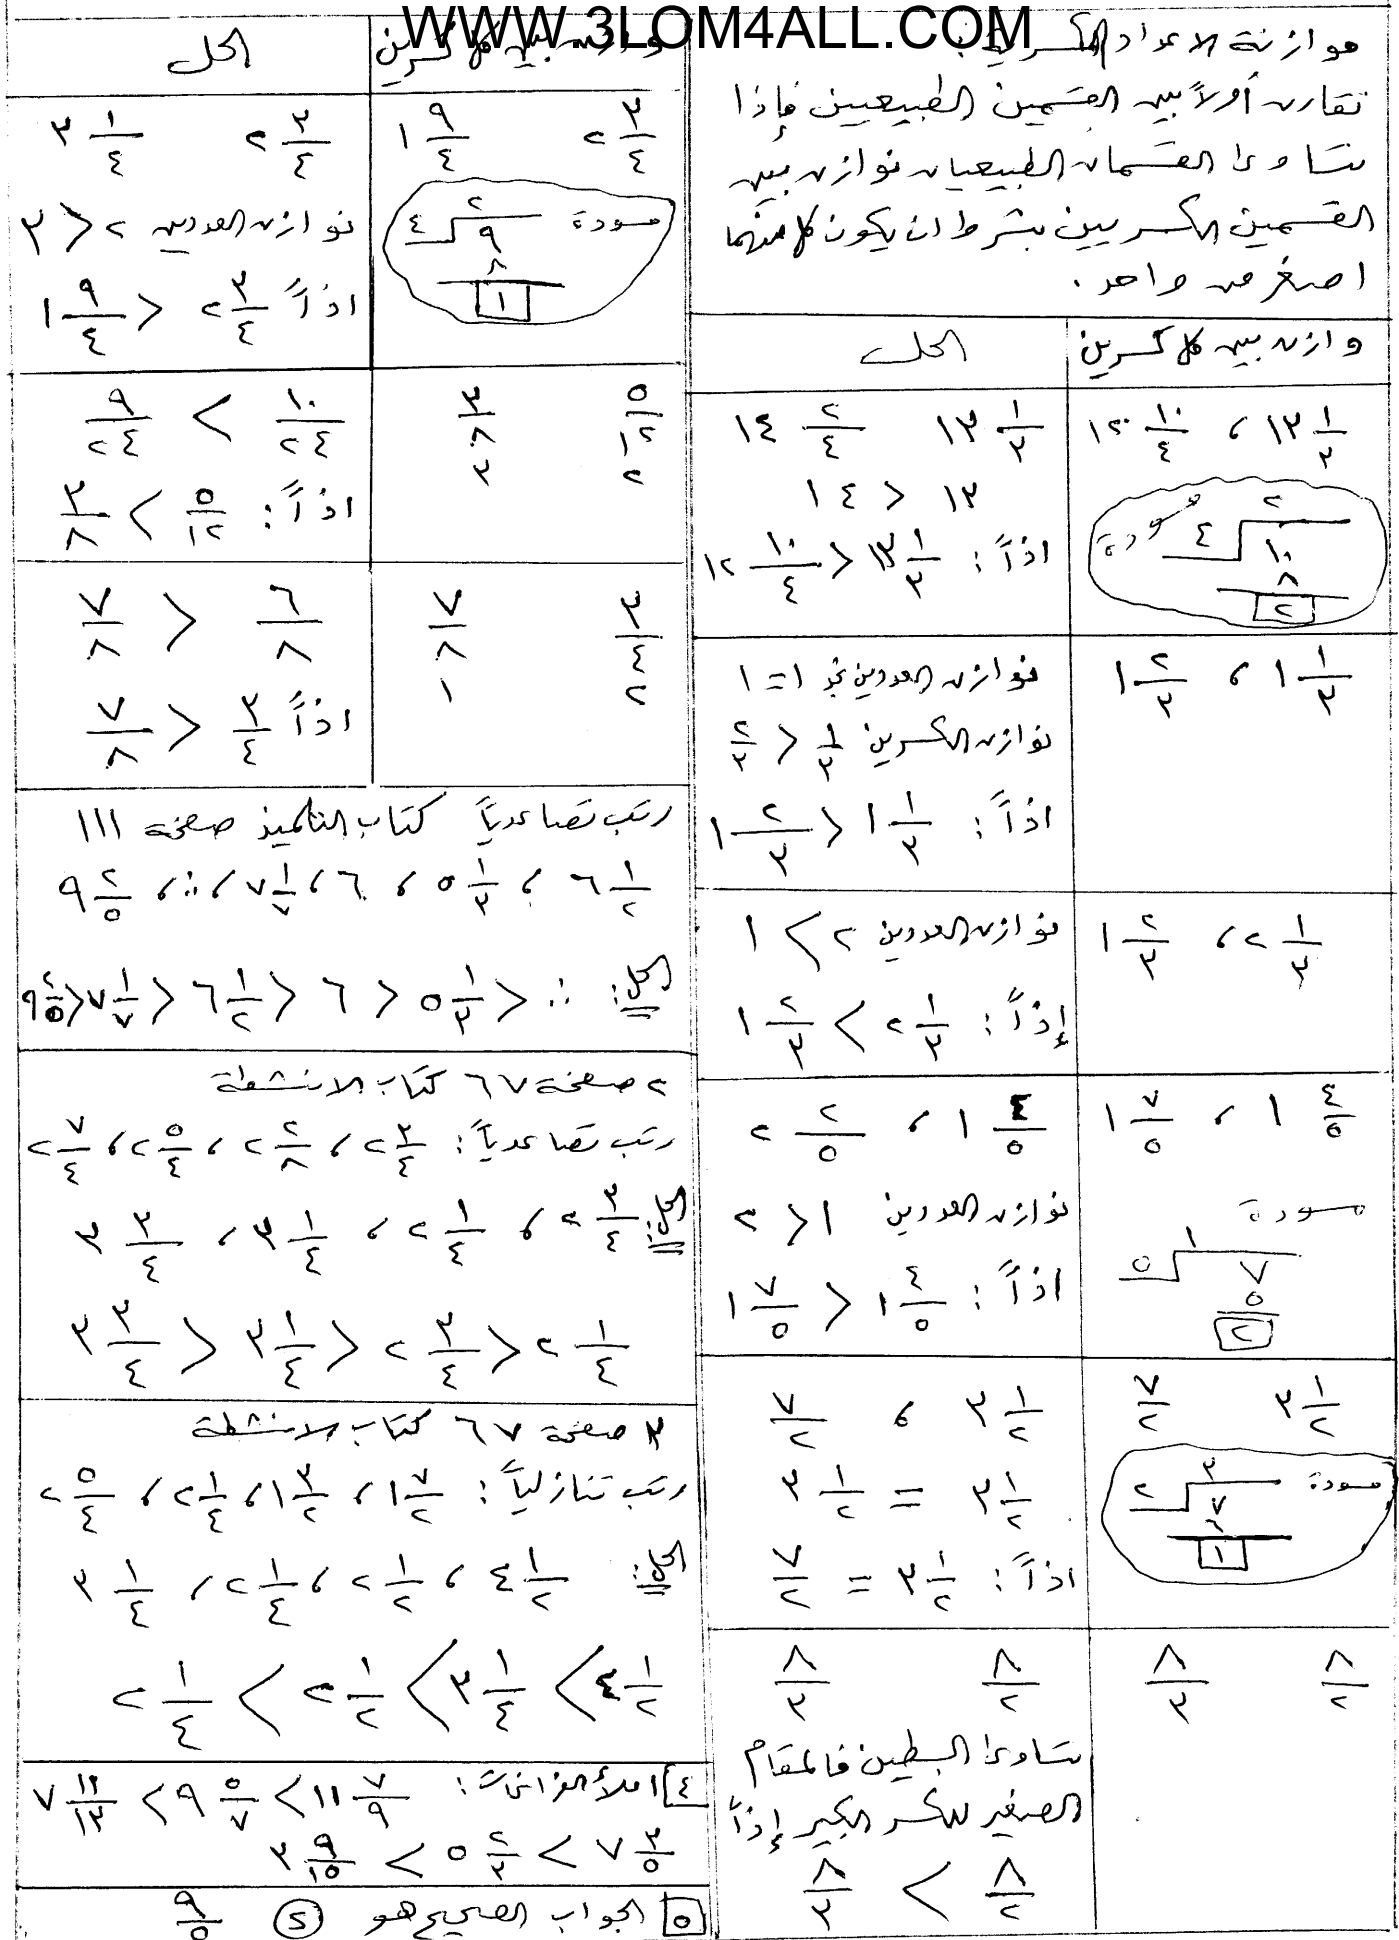 WWW.3LOM4ALL.COM
موازنة الاعداد الكسرية:
نقارن أولاً بين القسمين الطبيعيين فإذا
تساوى القسمان الطبيعيان نوازن بين
القسمين الكسريين بشرط ان يكون كل منهما
اصغر من واحد.
وازن بين كل كسرين الحل
١٣ ١/٣ ، ١٢ ١٠/٤
١٣ ١/٣ ١٤ ٢/٤
مسودة
٢
٤ ١٠
٨
٢
١٣ < ١٤
اذاً: ١٣ ١/٣ < ١٢ ١٠/٤
١ ١/٣ ، ١ ٢/٣
نوازن العددين نجد ١ = ١
نوازن الكسرين ١/٣ < ٢/٣
اذاً: ١ ١/٣ < ١ ٢/٣
٢ ١/٣ ، ١ ٢/٣
نوازن العددين ٢ > ١
إذاً: ٢ ١/٣ > ١ ٢/٣
١ ٤/٥ ، ١ ٧/٥
١ ٤/٥ ، ٢ ٢/٥
مسودة
١
٥ ٧
٥
٢
نوازن العددين ١ < ٢
اذاً: ١ ٤/٥ < ١ ٧/٥
٣ ١/٢ ٧/٢
٣ ١/٢ ، ٧/٢
مسودة
٣
٢ ٧
٦
١
٣ ١/٢ = ٣ ١/٢
اذاً: ٣ ١/٢ = ٧/٢
٨/٢ ٨/٣
٨/٢ ٨/٣
تساوى البسطين فالمقام
الصغير للكسر الكبير إذاً
٨/٢ > ٨/٣
وازن بين كل كسرين الحل
٢ ٣/٤ ١ ٩/٤
٢ ٣/٤ ٣ ١/٤
مسودة
٢
٤ ٩
٨
١
نوازن العددين ٢ < ٣
اذاً ٢ ٣/٤ < ١ ٩/٤
٥/١٢ ٣/٨
٢ ٣
١٠/٢٤ > ٩/٢٤
اذاً: ٥/١٢ > ٣/٨
٣/٤ ٧/٨
٢ ١
٦/٨ < ٧/٨
اذاً ٣/٤ < ٧/٨
رتب تصاعدياً كتاب التلميذ صفحة ١١١
٦ ١/٢ ، ٥ ١/٣ ، ٦٫ ، ٧ ١/٧ ، ∴ ، ٩ ٢/٥
الحل: ∴ < ٥ ١/٣ < ٦ < ٦ ١/٢ < ٧ ١/٧ < ٩ ٢/٥
٢ صفحة ٦٧ كتاب الانشطة
رتب تصاعدياً: ٢ ٣/٤ ، ٢ ٢/٨ ، ٢ ٥/٤ ، ٢ ٧/٤
الحل: ٢ ٣/٤ ، ٢ ١/٤ ، ٣ ١/٤ ، ٣ ٣/٤
٢ ١/٤ < ٢ ٣/٤ < ٣ ١/٤ < ٣ ٣/٤
٣ صفحة ٦٧ كتاب الانشطة
رتب تنازلياً: ١ ٧/٢ ، ١ ٣/٢ ، ٢ ١/٤ ، ٢ ٥/٤
الحل: ٤ ١/٢ ، ٢ ١/٢ ، ٢ ١/٤ ، ٣ ١/٤
٤ ١/٢ > ٣ ١/٤ > ٢ ١/٢ > ٢ ١/٤
٤ املأ الفراغات: ١١ ٧/٩ > ٩ ٥/٧ > ٧ ١١/١٣
٧ ٣/٥ > ٥ ٢/٣ > ٣ ٩/١٥
٥ الجواب الصحيح هو ٢ ٩/٥